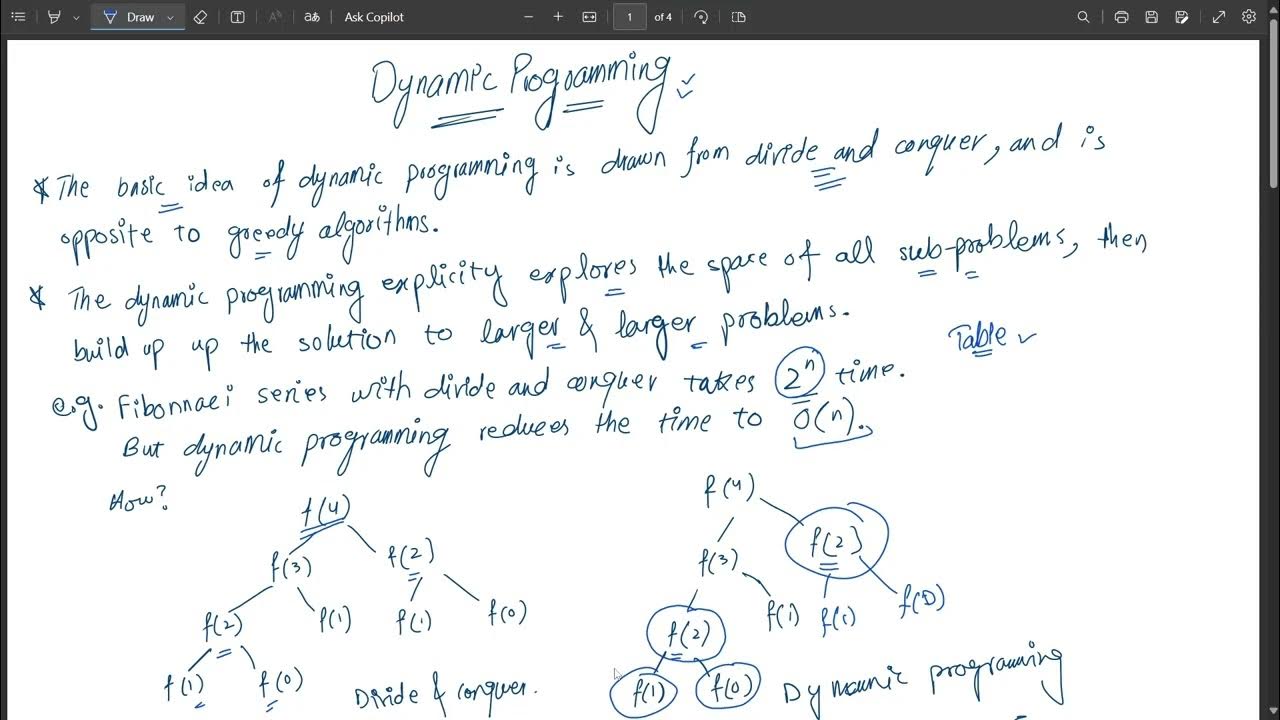 Draw
aあ
Ask Copilot
1
of 4
Dynamic Programming
* The basic idea of dynamic programming is drawn from divide and conquer, and is
opposite to greedy algorithms.
* The dynamic programming explicity explores the space of all sub-problems, then
build up up the solution to larger & larger problems.
Table
e.g. Fibonnaci series with divide and conquer takes 2ⁿ time.
But dynamic programming reduces the time to O(n).
How?
f(4)
f(3) f(2)
f(2) f(1) f(1) f(0)
f(1) f(0)
Divide & conquer.
f(4)
f(3) f(2)
f(2) f(1) f(1) f(0)
f(1) f(0)
Dynamic programing